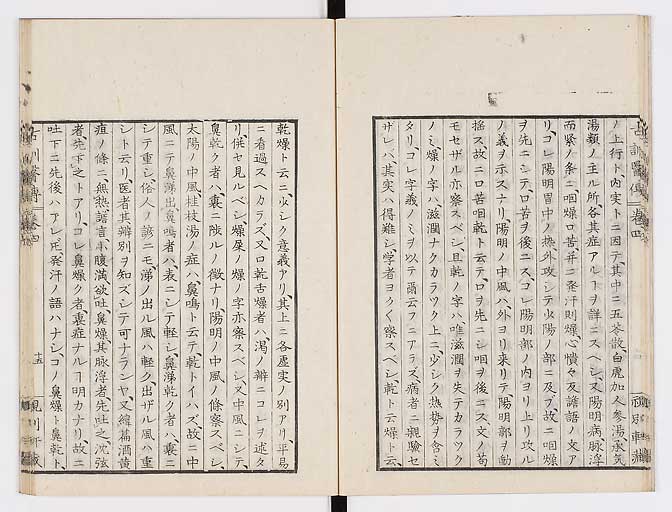 ノ上行ト内実トニ因テ、其中ニ五苓散白虎加人参湯、承気
湯類ノ主ル所各其症アルヿヲ詳ニスヘシ、又陽明病脉浮
而緊ノ条ニ、咽燥口苦并ニ発汗則燥心憒々及譫語ノ文ア
リ、コレ陽明冒中ノ熱外攻シテ少陽ノ部ニ及ブ故ニ咽燥
ヲ先ニシテ口苦ヲ後ニス、コレ陽明部ノ内ヨリ上リ攻ル
ノ義ヲ示スナリ、陽明ノ中風ハ、外ヨリ来リテ陽明部ヲ動
揺ス故ニ口苦咽乾ト云テ、口ヲ先ニシ咽ヲ後ニス文ノ苟
モセザル亦察スベシ、且乾ノ字ハ唯滋潤ヲ失テカラツク
ノミ燥ノ字ハ、滋潤ナクカラツク上ニ少シク熱勢ヲ含ミ
タリ、コレ字義ノミヲ以テ爾云フニアラズ、病者ニ親験セ
ザレハ、其実ハ得難シ、学者ヨク〱察スベシ、乾ト云燥ト云、
古訓醫傳 巻四
乾燥ト云ニ、少シク意義アリ、其上ニ各虚実ノ別アリ、平易
ニ看過スヘカラズ、又口乾舌燥者ハ、渇ノ辨ニコレヲ述タ
リ、併セ見ルベシ、燥屎ノ燥ノ字亦察スベシ、又中風ニシテ、
鼻乾ク者ハ、裏ニ陥ルノ徴ナリ、陽明ノ中風ノ條察スベシ、
太陽ノ中風、桂枝湯ノ症ハ、鼻鳴ト云テ、乾トイハズ、故ニ中
風ニテ鼻涕出鼻鳴者ハ、表ニシテ軽シ、鼻涕乾ク者ハ、裏ニ
シテ重シ、俗人ノ諺ニモ涕ノ出ル風ハ軽ク出ザル風ハ重
シト云リ、医者其辨別ヲ知ズシテ可ナランヤ、又
疸ノ條ニ、無熱譫言小腹満欲吐鼻燥、其脉浮者先吐之、沈弦
者、先下之トアリ、コレ鼻燥ク者、裏症ナルヿ明カナリ、故ニ
吐下ニ先後ハアレ𪜈、発汗ノ語ハナシ、コノ鼻燥ト鼻乾ト、
十五